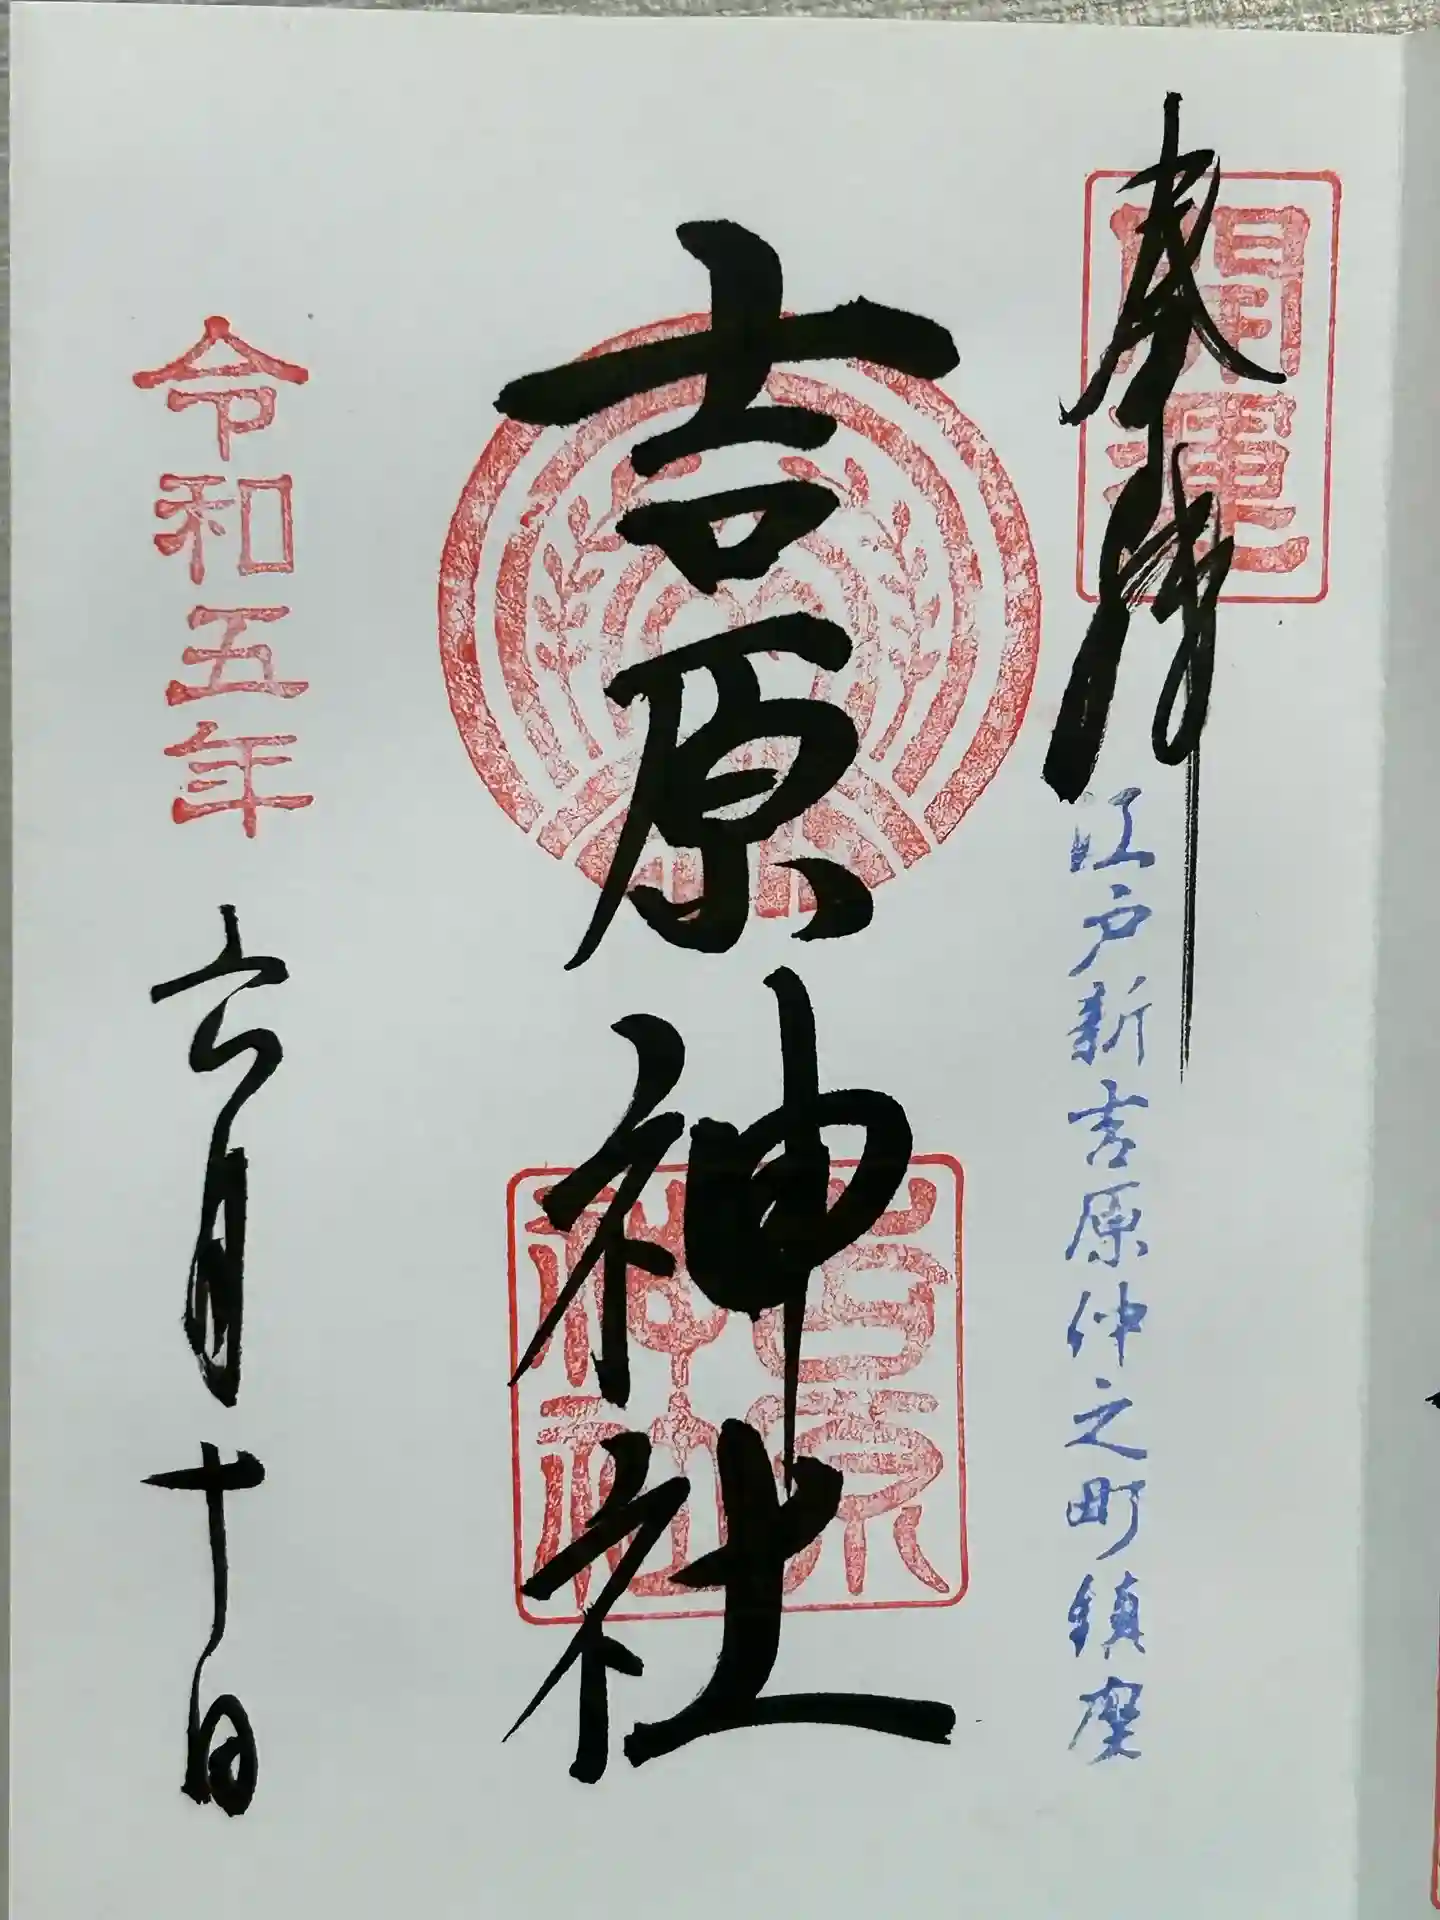 奉拝
開運
江戸新吉原仲之町鎮座
吉原神社
吉原
神社
令和五年
六月十日